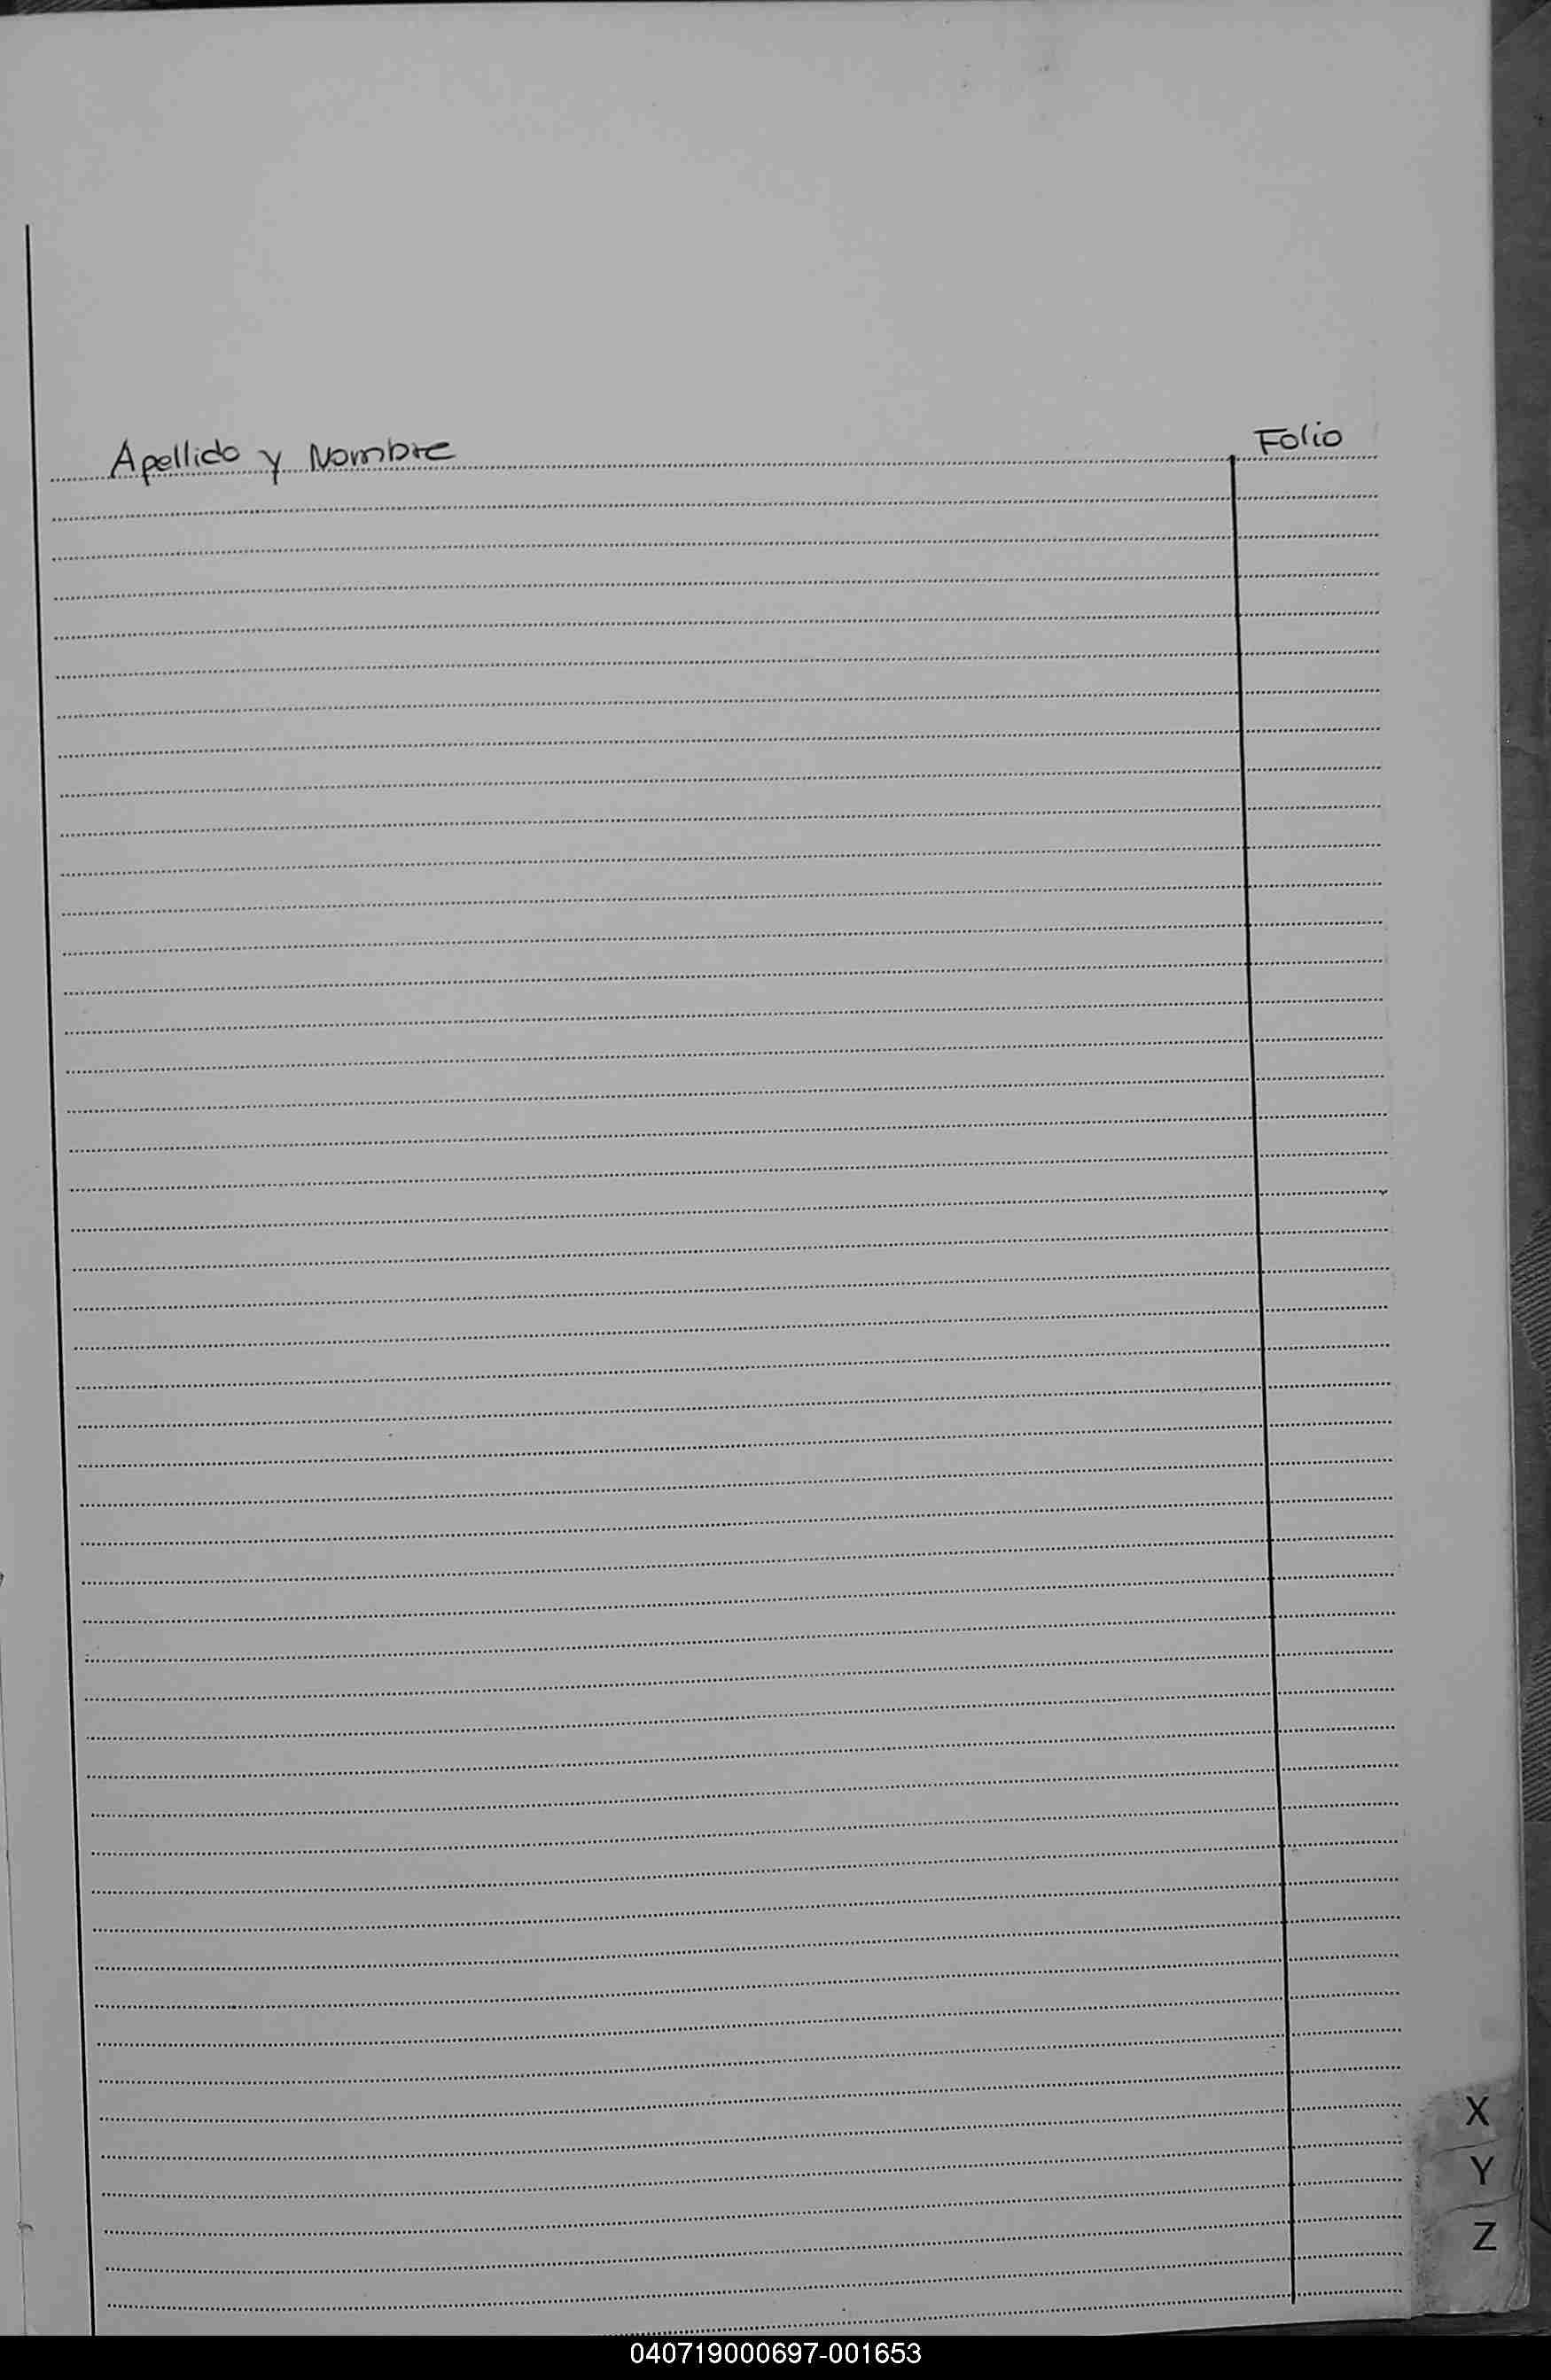 Apellido y Nombre Folio
X
Y
Z
040719000697-001653